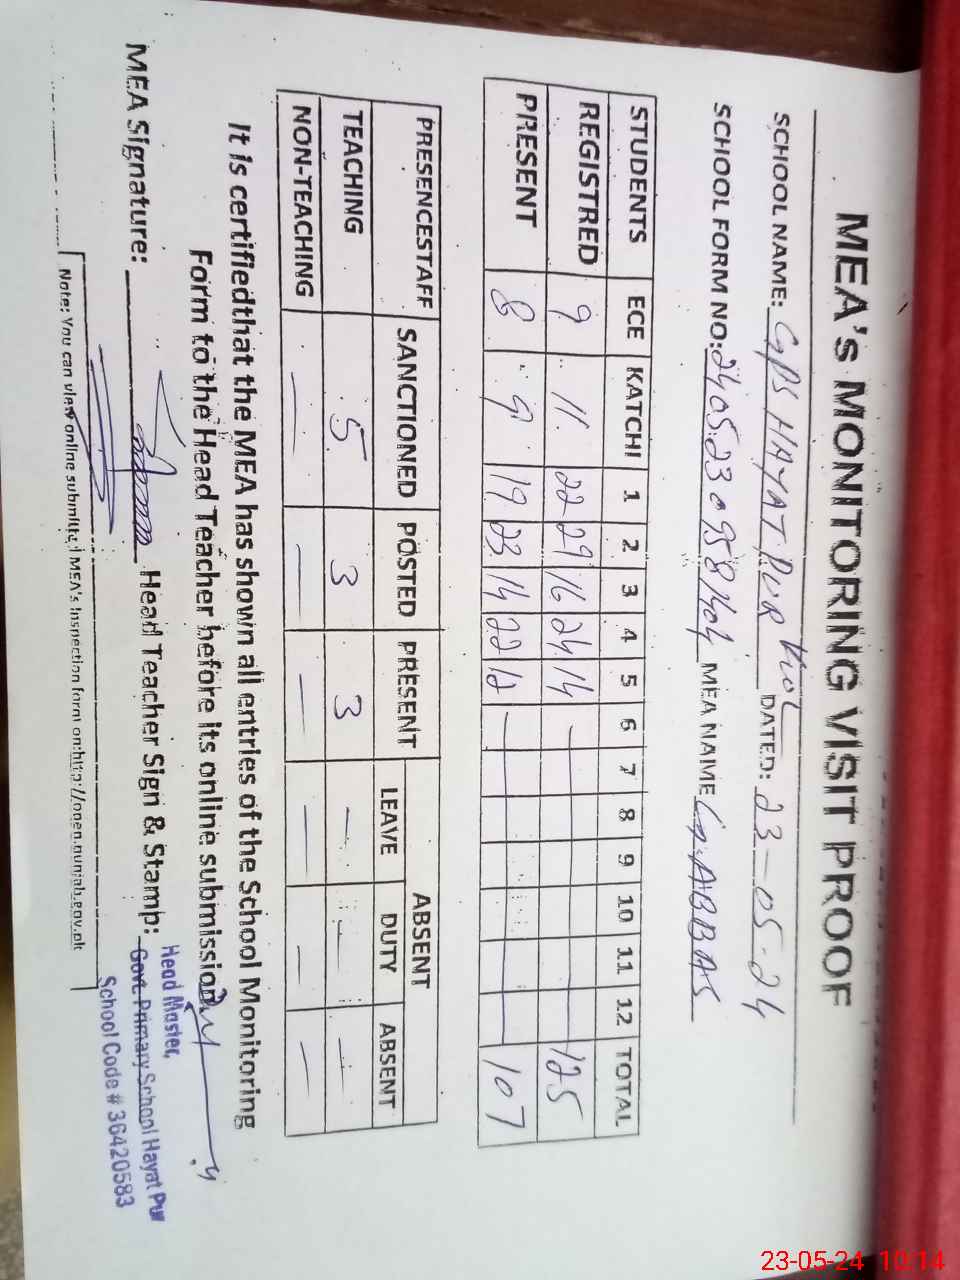 MEA's MONITORING VISIT PROOF
SCHOOL NAME: GPS HAYAT PUR DATED: 23-05-24
SCHOOL FORM NO: MEA NAME ABBAS
STUDENTS ECE KATCHI 1 2 3 4 5 6 7 8 9 10 11 12 TOTAL
REGISTRED 9 11 22 29 16 24 14 — 125
PRESENT 8 9 19 23 14 22 12 — 107
PRESENCESTAFF SANCTIONED POSTED PRESENT ABSENT
LEAVE DUTY ABSENT
TEACHING 5 3 3 — — —
NON-TEACHING — — — — — —
It is certifiedthat the MEA has shown all entries of the School Monitoring
Form to the Head Teacher before its online submission.
MEA Signature: Head Teacher Sign & Stamp:
Head Master,
Govt. Primary School Hayat Pur
School Code # 36420583
Note: You can view online submitted MEA's inspection form on:http://open.punjab.gov.pk
23-05-24 10:14